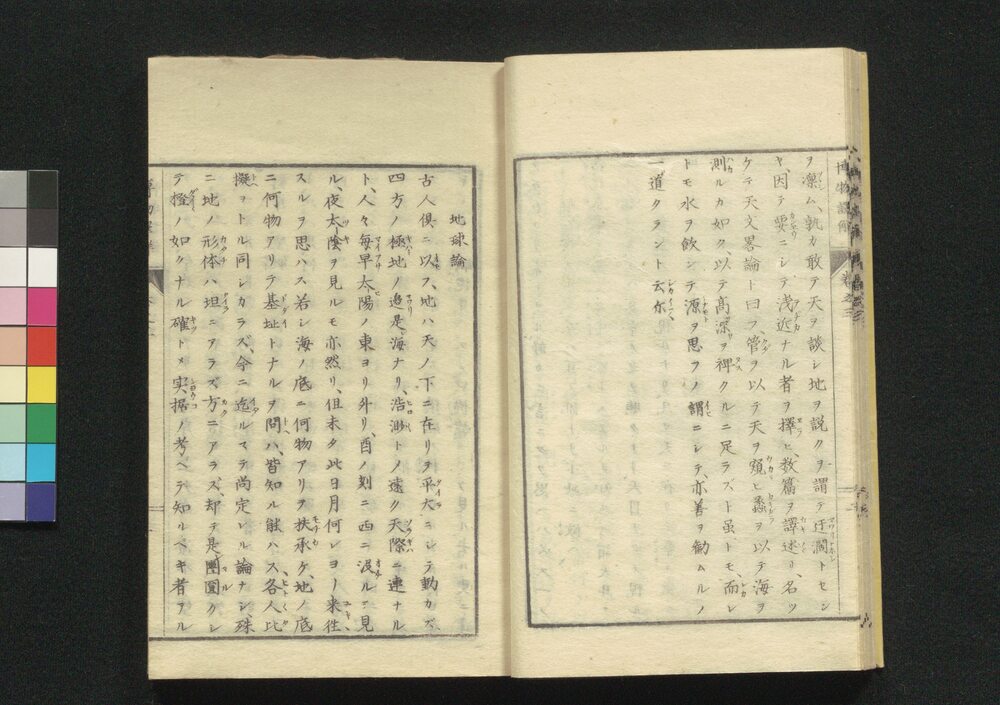 博物語解
ヲ凛ム、孰カ敢テ天ヲ談シ地ヲ説クヲ謂テ迂濶トセン
ヤ、因テ要ニシテ浅近ナル者ヲ擇ヒ、数篇ヲ譯述リ、名ツ
ケテ天文畧論ト曰フ、管ヲ以テ天ヲ窺ヒ蠡ヲ以テ海ヲ
測ルカ如ク、以テ高深ヲ裨クルニ足ラズト虽トモ、而レ
トモ水ヲ飲ンテ源ヲ思フノ謂ニシテ、亦善ヲ勧ムルノ
一道タラント云尓
地球論
古人俱ニ以フ、地ハ天ノ下ニ在リヲ平大ニシテ動カズ
四方ノ極地ノ邉是海ナリ、浩渺トノ遠ク天際ニ連ナル
ト、人々毎早太陽ノ東ヨリ外リ、酉ノ刻ニ西ニ沒ルニ見
ル、夜太陰ヲ見ルモ亦然リ、但未タ此日月何レヨリ来往
スルヲ思ハス若シ海ノ底ニ何物アリヲ扶承ケ、地ノ底
ニ何物アリテ基址トナルヲ問ハ、皆知ル能ハス各人比
擬ヲトル同シカラズ、今ニ迄ルマテ尚定レル論ナシ、殊
ニ地ノ形体ハ坦ニアラズ方ニアラズ、却テ是團圓クシ
テ橙ノ如クナル確トメ実据ノ考ヘテ知ルヘキ者アル